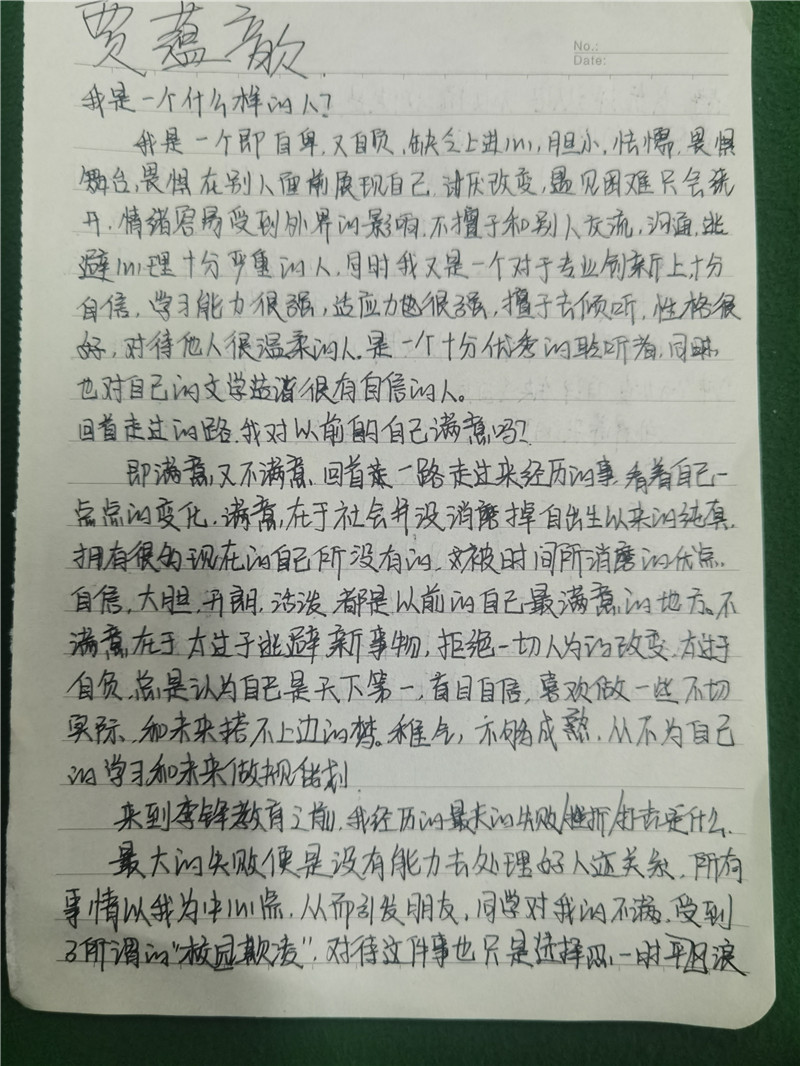 贾蕴歆
No.:
Date:
我是一个什么样的人?
我是一个即自卑,又自负,缺乏上进心,胆小,怯懦,畏惧
舞台,畏惧在别人面前展现自己,讨厌改变,遇见困难只会绕
开,情绪容易受到外界的影响,不擅于和别人交流,沟通,逃
避心理十分严重的人,同时我又是一个对于专业创新上十分
自信,学习能力很强,适应力也很强,擅于去倾听,性格很
好,对待他人很温柔的人.是一个十分优秀的聆听者,同时
也对自己的文学造诣很有自信的人。
回首走过的路,我对以前的自己满意吗?
即满意,又不满意,回首走一路走过来经历的事,看着自己一
点点的变化,满意,在于社会并没消磨掉自出生以来的纯真.
拥有很多现在的自己所没有的,被时间所消磨的优点.
自信,大胆,开朗,活泼,都是以前的自己最满意的地方。不
满意,在于太过于逃避新事物,拒绝一切人为的改变,太过于
自负,总是认为自己是天下第一,盲目自信,喜欢做一些不切
实际,和未来搭不上边的梦。稚气,不够成熟,从不为自己
的学习和未来做规划
来到李锋教育之前,我经历的最大的失败/挫折/打击是什么.
最大的失败便是没有能力去处理好人际关系,所有
事情以我为中心点,从而引发朋友,同学对我的不满,受到
了所谓的“校园欺凌”,对待这件事也只是选择以一时平风浪